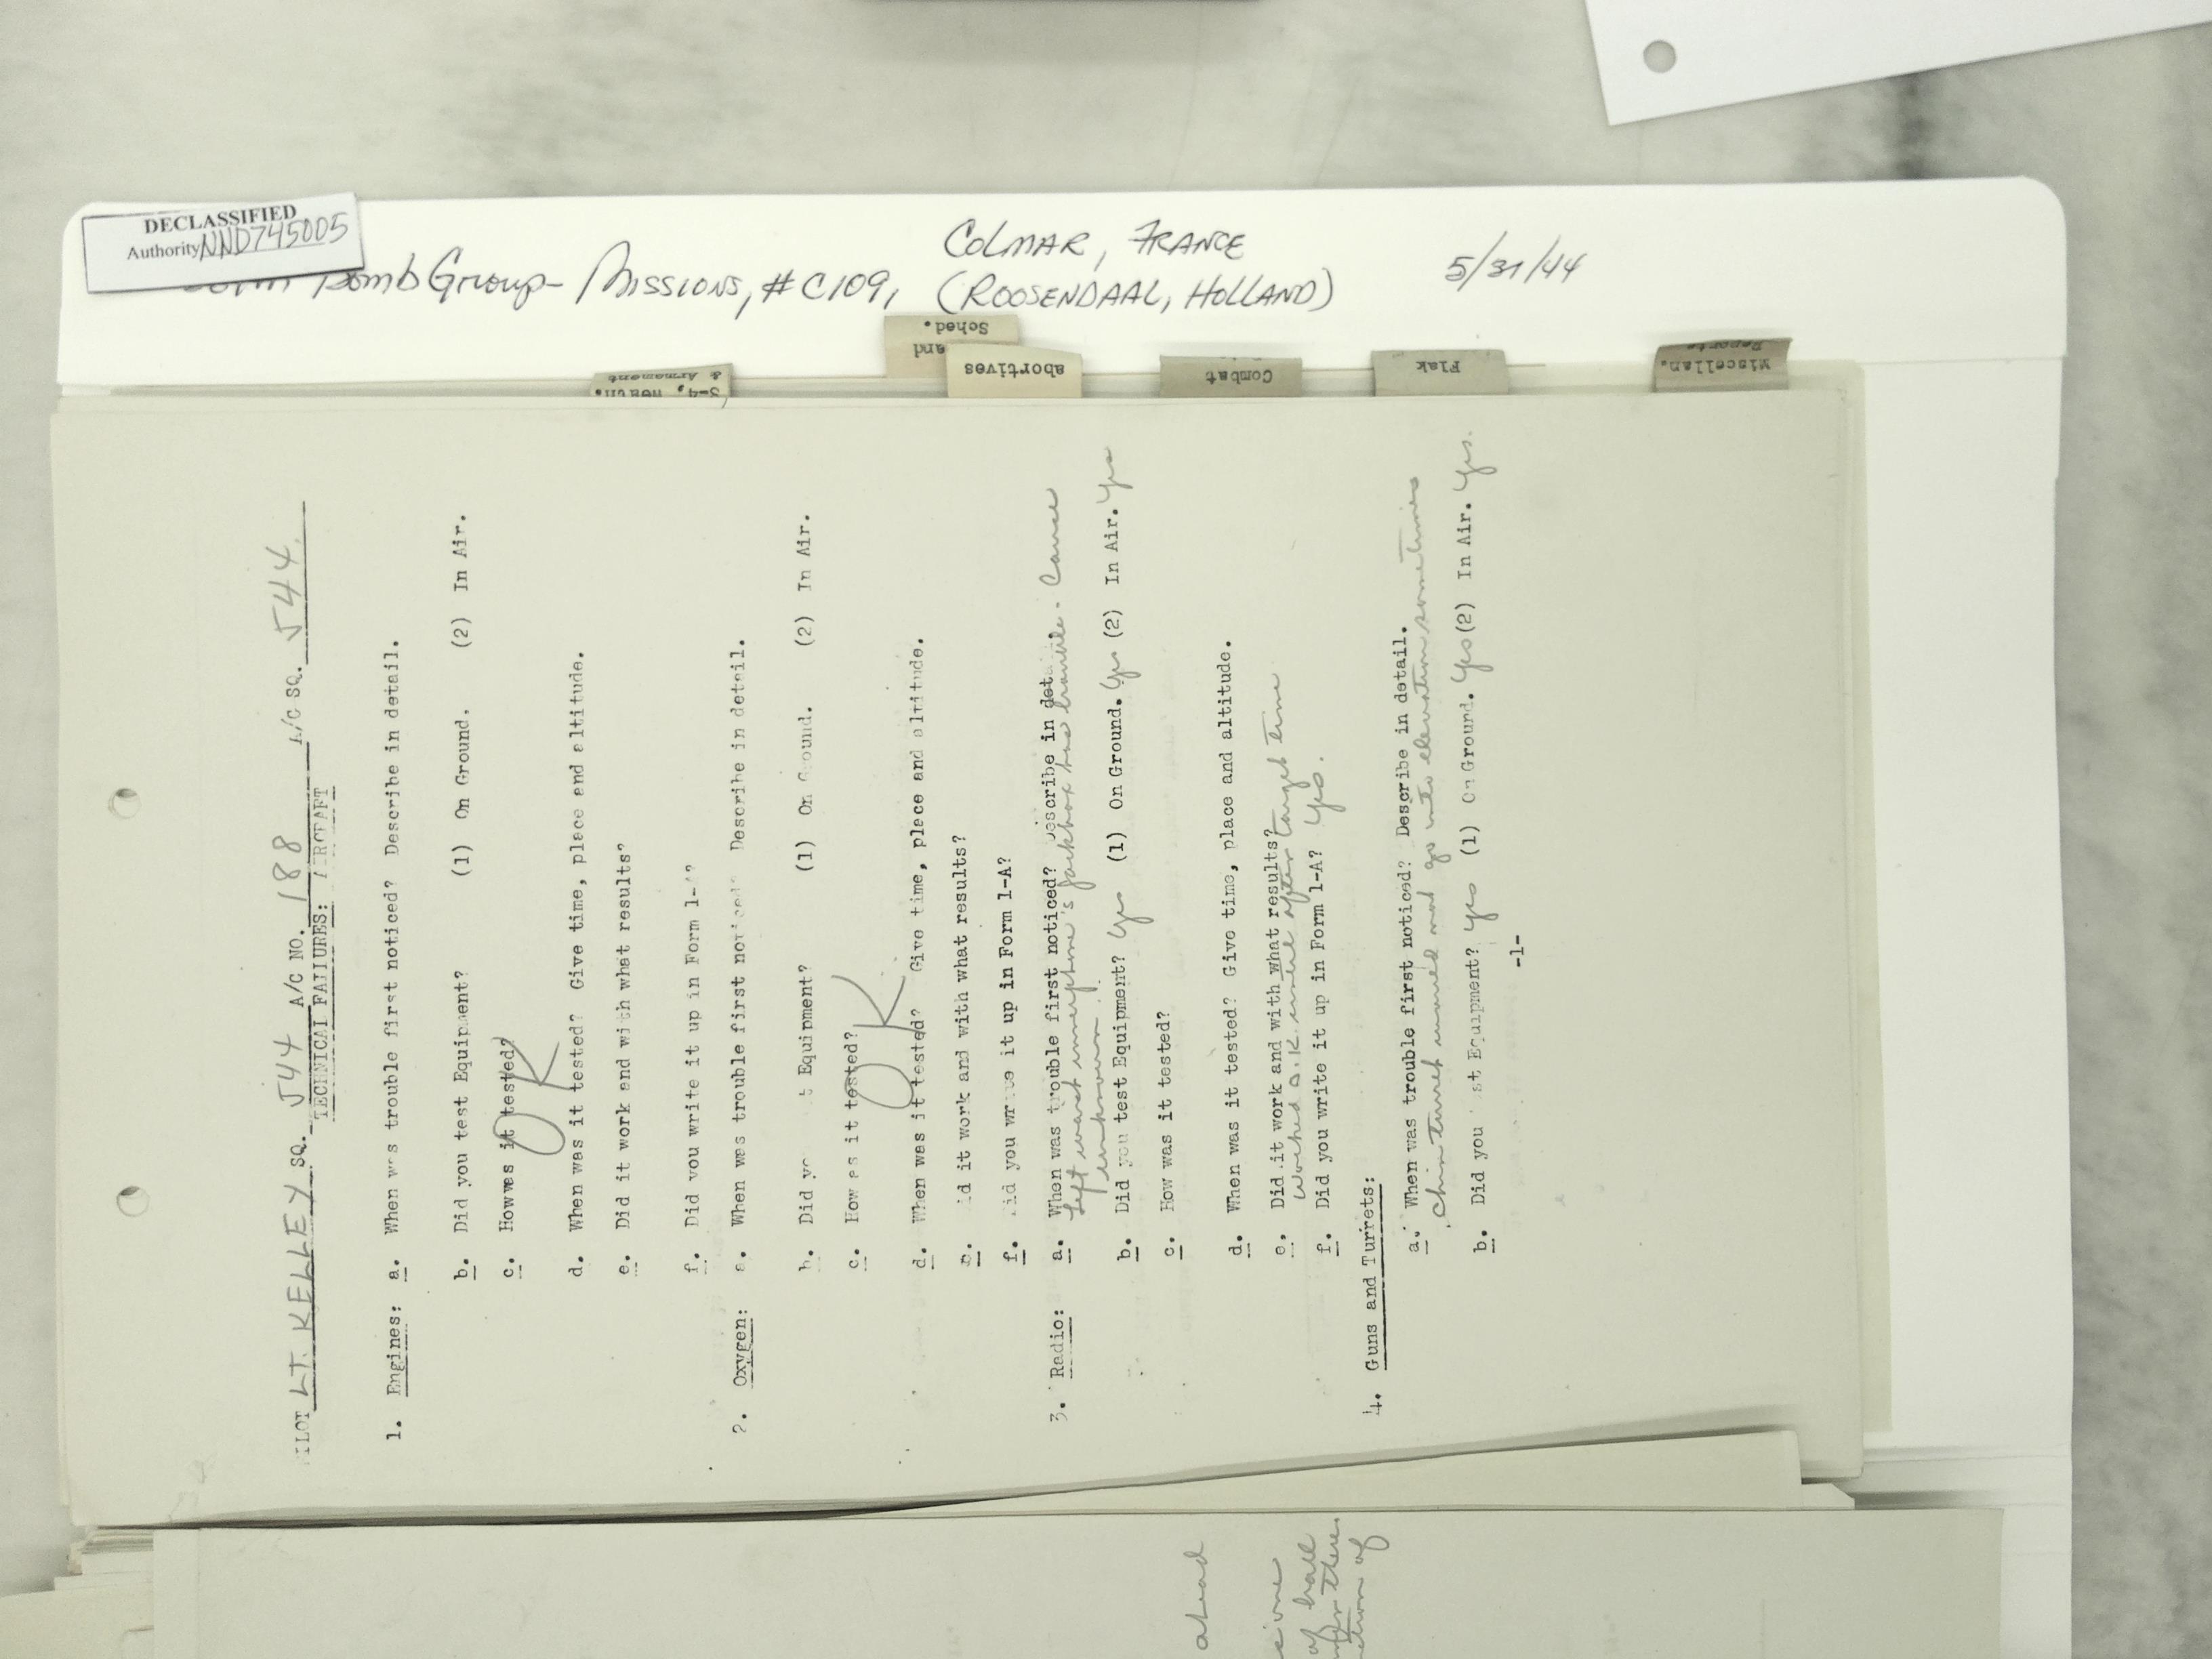 DECLASSIFIED
Authority NND745005
Bomb Group- Missions, #C109, COLMAR, FRANCE
(ROOSENDAAL, HOLLAND)
5/31/44
S-4,
& Armament
and
Sched.
abortives
Combat
Flak
Miscellan.
Reports
PILOT LT. KELLEY SQ. 544 A/C NO. 188 A/C SQ. 544
TECHNICAL FAILURES: AIRCRAFT
1. Engines: a. When was trouble first noticed? Describe in detail.
b. Did you test Equipment? (1) On Ground. (2) In Air.
c. How was it tested?
OK
d. When was it tested? Give time, place and altitude.
e. Did it work and with what results?
f. Did you write it up in Form 1-A?
2. Oxygen: a. When was trouble first noticed? Describe in detail.
b. Did yo t Equipment? (1) On Ground. (2) In Air.
c. How as it tested?
OK
d. When was it tested? Give time, place and altitude.
e. id it work and with what results?
f. Did you write it up in Form 1-A?
3. Radio: a. When was trouble first noticed? Describe in det
Left waist interphone's jackbox has trouble. Cause
unknown.
b. Did you test Equipment? Yes (1) On Ground. Yes (2) In Air. Yes
c. How was it tested?
d. When was it tested? Give time, place and altitude.
e. Did it work and with what results?
Worked O.K. after target time
f. Did you write it up in Form 1-A? Yes.
4. Guns and Turrets:
a. When was trouble first noticed? Describe in detail.
Chin turret would not go into elevation sometimes
b. Did you st Equipment? Yes (1) On Ground. Yes (2) In Air. Yes.
-1-
ahead
of